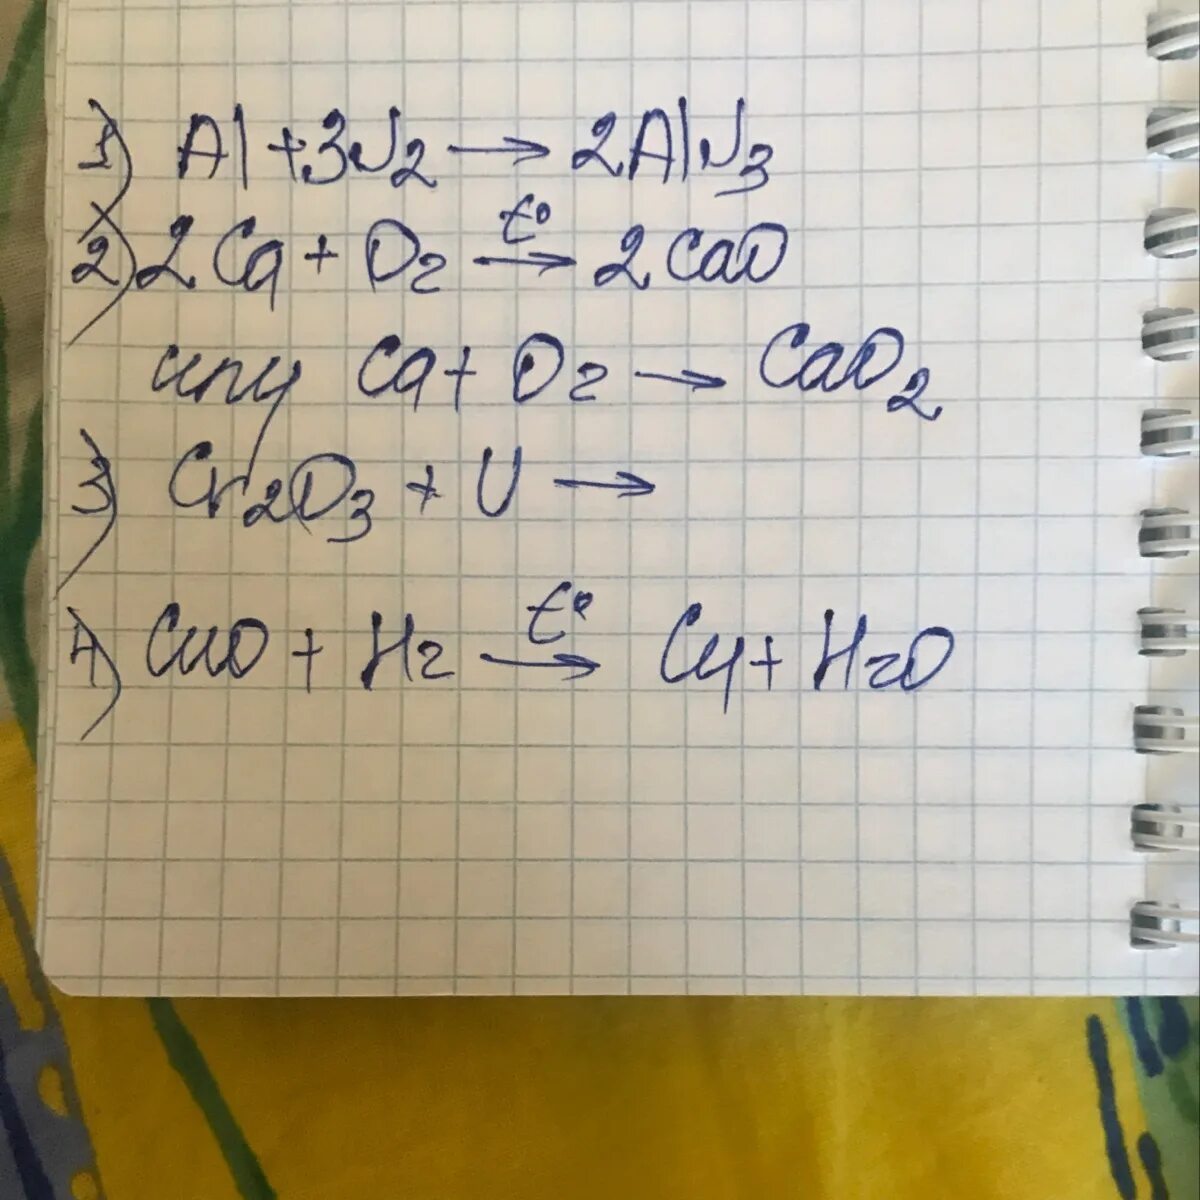 1) Al + 3N2 → 2AlN3
2) 2Ca + O2 →t° 2CaO
или Ca + O2 → CaO2
3) Cr2O3 + U →
4) CuO + H2 →t° Cu + H2O